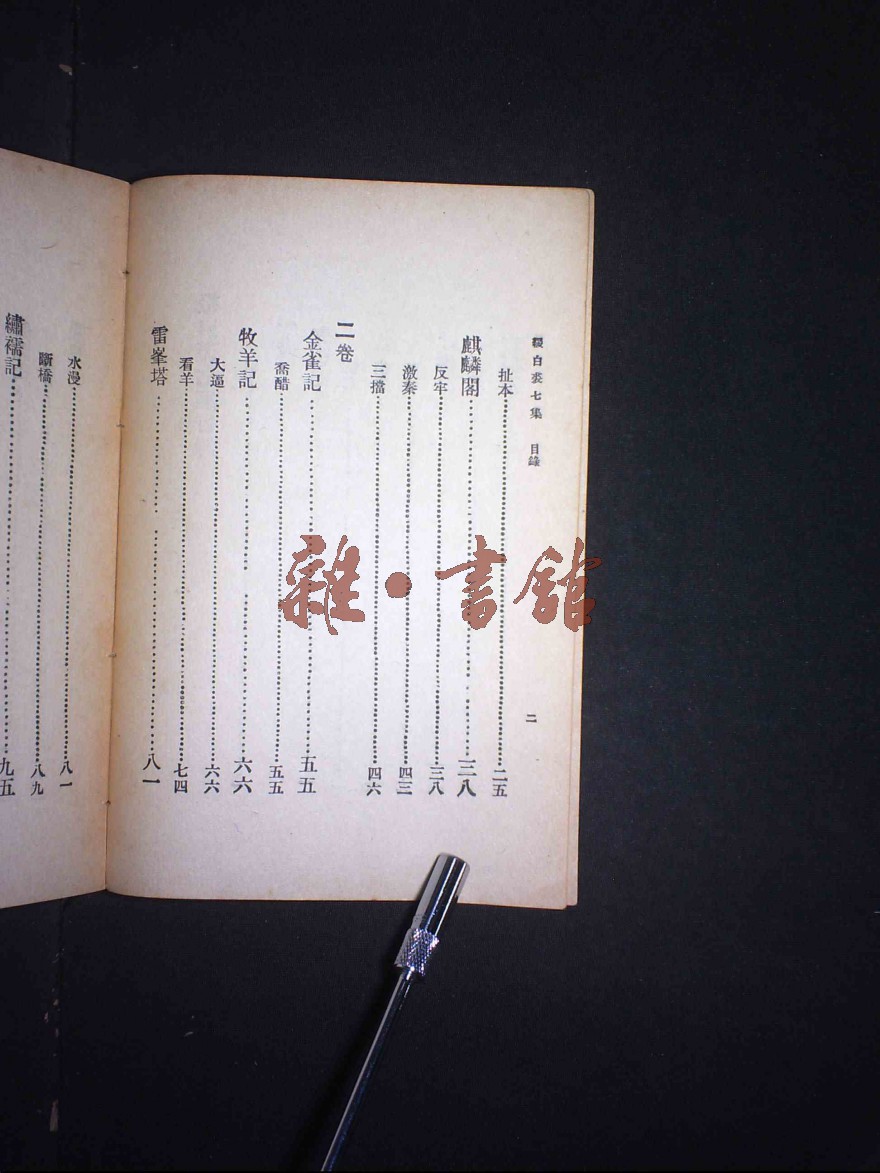 綴白裘七集　目錄　二
扯本……二五
麒麟閣……三八
反牢……三八
激秦……四三
三擋……四六
二卷
金雀記……五五
喬醋……五五
牧羊記……六六
大逼……六六
看羊……七四
雷峯塔……八一
水漫……八一
斷橋……八九
繡襦記……九五
雜·書舘